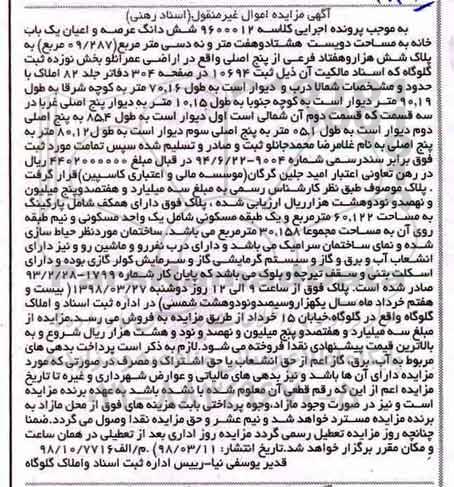 آگهی مزایده اموال غیرمنقول(اسناد رهنی)
به موجب پرونده اجرایی کلاسه ۹۶۰۰۰۱۲ شش دانگ عرصه و اعیان یک باب
خانه به مساحت دویست هشتادوهفت متر و نه دسی متر مربع(۰۹/۲۸۷ مربع) به
پلاک شش هزاروهفتاد فرعی از پنج اصلی واقع در اراضی عمرانلو بخش نوزده ثبت
گلوگاه که اسناد مالکیت آن ذیل ثبت ۱۰۶۹۴ در صفحه ۳۰۴ دفاتر جلد ۸۲ املاک با
حدود و مشخصات شمالا درب و دیوار است به طول ۷۰,۱۶ متر به کوچه شرقا به طول
۹۰,۱۹ متر دیوار است به کوچه جنوبا به طول ۱۰,۱۵ متر به دیوار پنج اصلی غربا در
سه قسمت که قسمت دوم آن شمالی است اول دیوار است به طول ۸۵,۴ به پنج اصلی
دوم دیوار است به طول ۰۵, متر به پنج اصلی سوم دیوار است به طول ۸۰,۱۲ متر به
پنج اصلی به نام غلامرضا محمدجانلو ثبت و صادر و تسلیم شده سپس تمامت مورد ثبت
فوق برابر سندرسمی شماره ۹۰۰۴-۹۴/۶/۲۲ در قبال مبلغ ۴۴۰۲۰۰۰۰۰۰ ریال
در رهن تعاونی اعتبار امید جلین گرگان(موسسه مالی و اعتباری کاسپین)قرار گرفت
. پلاک موصوف طبق نظر کارشناس رسمی به مبلغ سه میلیارد و هفتصدوپنج میلیون
و نهصد و نودوهشت هزارریال ارزیابی شده . پلاک فوق دارای همکف شامل پارکینگ
به مساحت ۶۰,۱۲۲ مترمربع و یک طبقه مسکونی شامل یک واحد مسکونی و نیم طبقه
روی آن به مساحت مجموعا ۳۰,۱۵۸ مترمربع می باشد. ساختمان موردنظر حیاط سازی
شده و نمای ساختمان سرامیک می باشد و دارای درب نفررو و ماشین رو و نیز دارای
انشعاب آب و برق و گاز و سیستم گرمایشی گاز و سرمایش کولر گازی بوده و دارای
اسکلت بتنی و سقف تیرچه و بلوک می باشد که پایان کار شماره ۱۷۹۹-۹۳/۲/۲۸
صادر شده است. پلاک فوق از ساعت ۹ الی ۱۲ روز دوشنبه ۱۳۹۸/۰۳/۲۷(بیست و
هفتم خرداد ماه سال یکهزاروسیصدونودوهشت شمسی) در اداره ثبت اسناد و املاک
گلوگاه واقع در گلوگاه،خیابان ۱۵ خرداد از طریق مزایده به فروش می رسد.مزایده از
مبلغ سه میلیارد و هفتصدو پنج میلیون و نهصد و نود و هشت هزار ریال شروع و به
بالاترین قیمت پیشنهادی نقدا فروخته می شود.لازم به ذکر است پرداخت بدهی های
مربوط به آب، برق، گاز اعم از حق انشعاب یا حق اشتراک و مصرف در صورتی که مورد
مزایده دارای آن ها باشد و نیز بدهی های مالیاتی و عوارض شهرداری و غیره تا تاریخ
مزایده اعم از این که رقم قطعی آن معلوم شده یا نشده باشد به عهده برنده مزایده
است و نیز در صورت وجود مازاد،وجوه پرداختی بابت هزینه های فوق از محل مازاد به
برنده مزایده مسترد خواهد شد و نیم عشر و حق مزایده نقدا وصول می گردد.ضمنا
چنانچه روز مزایده تعطیل رسمی گردد مزایده روز اداری بعد از تعطیلی در همان ساعت
و مکان مقرر برگزار خواهد شد.تاریخ انتشار: (۹۸/۰۳/۱۱) م/الف۹۸/۱۰/۷۷۱۶
قدیر یوسفی نیا-رییس اداره ثبت اسناد واملاک گلوگاه